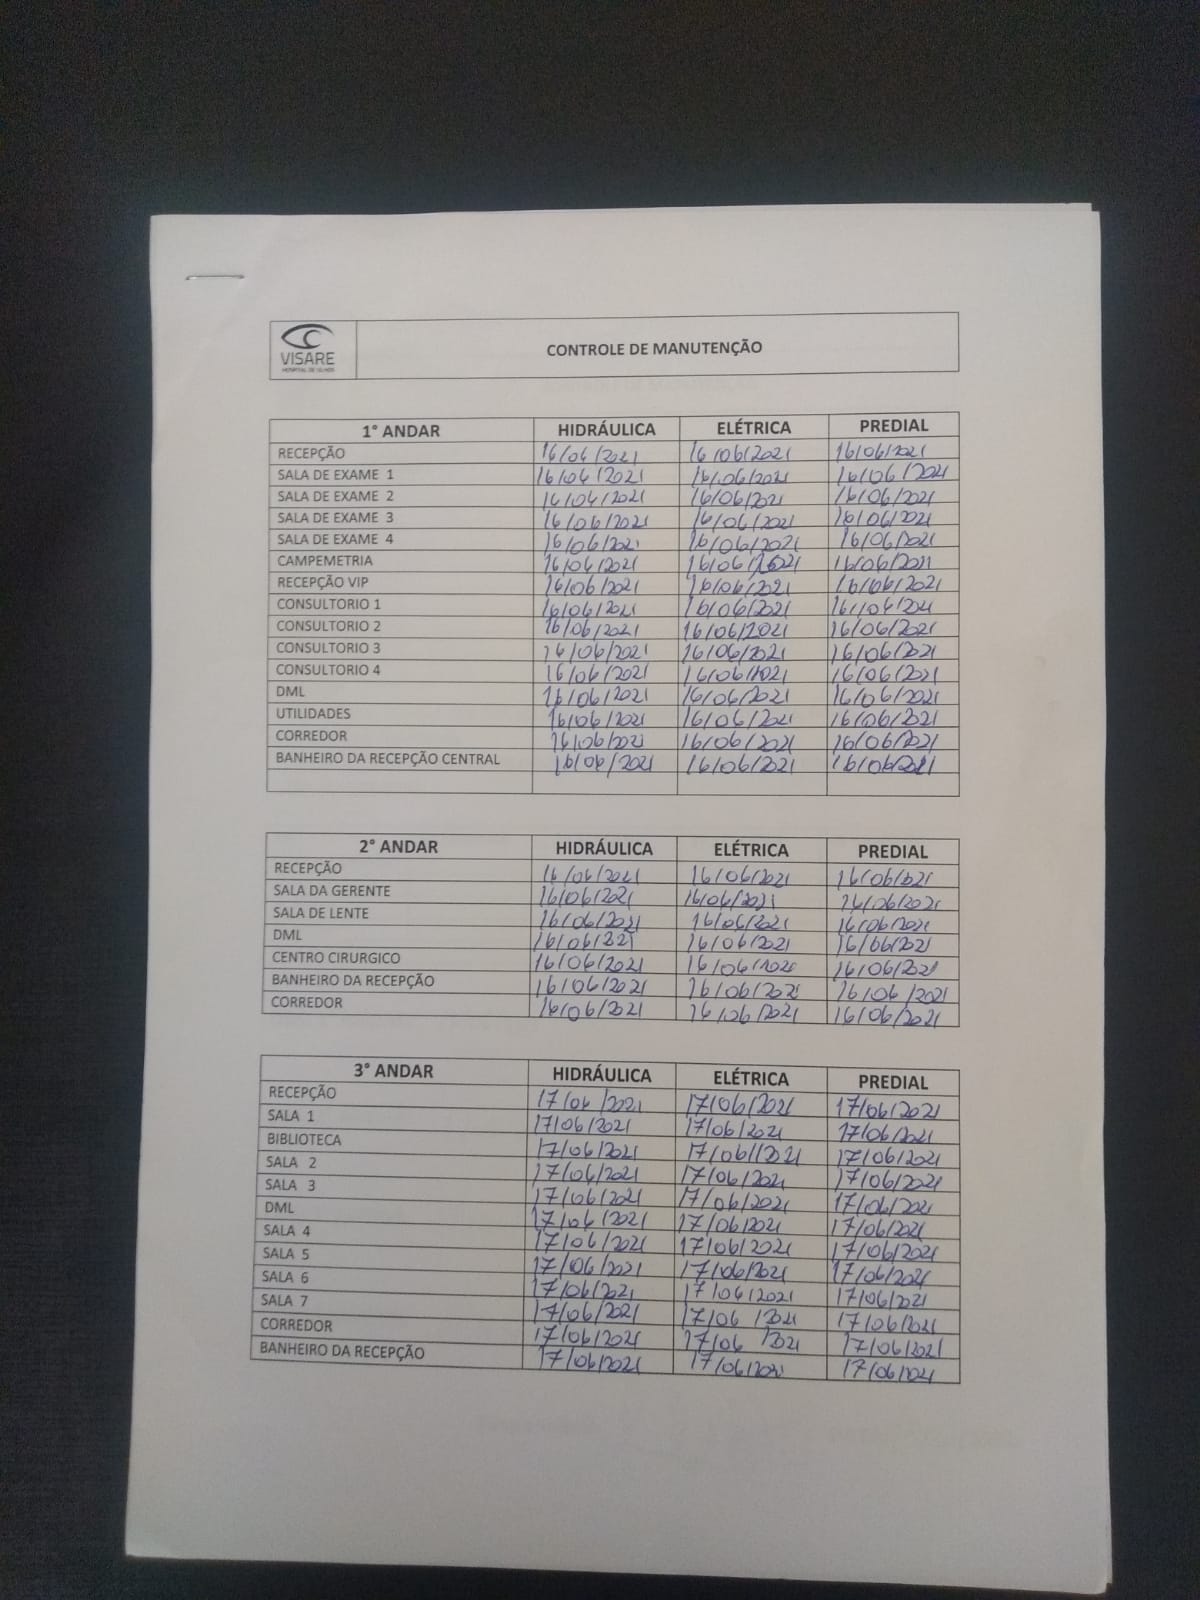 VISARE
HOSPITAL DE OLHOS
CONTROLE DE MANUTENÇÃO
1° ANDAR HIDRÁULICA ELÉTRICA PREDIAL
RECEPÇÃO 16/06/2021 16/06/2021 16/06/2021
SALA DE EXAME 1 16/06/2021 16/06/2021 16/06/2021
SALA DE EXAME 2 16/06/2021 16/06/2021 16/06/2021
SALA DE EXAME 3 16/06/2021 16/06/2021 16/06/2021
SALA DE EXAME 4 16/06/2021 16/06/2021 16/06/2021
CAMPEMETRIA 16/06/2021 16/06/2021 16/06/2021
RECEPÇÃO VIP 16/06/2021 16/06/2021 16/06/2021
CONSULTORIO 1 16/06/2021 16/06/2021 16/06/2021
CONSULTORIO 2 16/06/2021 16/06/2021 16/06/2021
CONSULTORIO 3 16/06/2021 16/06/2021 16/06/2021
CONSULTORIO 4 16/06/2021 16/06/2021 16/06/2021
DML 16/06/2021 16/06/2021 16/06/2021
UTILIDADES 16/06/2021 16/06/2021 16/06/2021
CORREDOR 16/06/2021 16/06/2021 16/06/2021
BANHEIRO DA RECEPÇÃO CENTRAL 16/06/2021 16/06/2021 16/06/2021
2° ANDAR HIDRÁULICA ELÉTRICA PREDIAL
RECEPÇÃO 16/06/2021 16/06/2021 16/06/2021
SALA DA GERENTE 16/06/2021 16/06/2021 16/06/2021
SALA DE LENTE 16/06/2021 16/06/2021 16/06/2021
DML 16/06/221 16/06/2021 16/06/2021
CENTRO CIRURGICO 16/06/2021 16/06/2021 16/06/2021
BANHEIRO DA RECEPÇÃO 16/06/2021 16/06/2021 16/06/2021
CORREDOR 16/06/2021 16/06/2021 16/06/2021
3° ANDAR HIDRÁULICA ELÉTRICA PREDIAL
RECEPÇÃO 17/06/2021 17/06/2021 17/06/2021
SALA 1 17/06/2021 17/06/2021 17/06/2021
BIBLIOTECA 17/06/2021 17/06/2021 17/06/2021
SALA 2 17/06/2021 17/06/2021 17/06/2021
SALA 3 17/06/2021 17/06/2021 17/06/2021
DML 17/06/2021 17/06/2021 17/06/2021
SALA 4 17/06/2021 17/06/2021 17/06/2021
SALA 5 17/06/2021 17/06/2021 17/06/2021
SALA 6 17/06/2021 17/06/2021 17/06/2021
SALA 7 17/06/2021 17/06/2021 17/06/2021
CORREDOR 17/06/2021 17/06/2021 17/06/2021
BANHEIRO DA RECEPÇÃO 17/06/2021 17/06/2021 17/06/2021